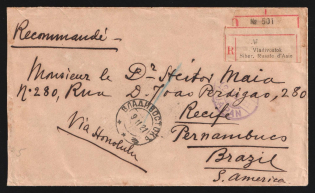 № 501
Recommandé-
R
Vladivostok
Sibér. Russie d'Asie
Monsieur le Dr Heitor Maia
№ 280, Rua D. Joao Perdigao, 280
ВЛАДИВОСТОК
Recife
Via Honolulu
Pernambuco
Brazil
S. America